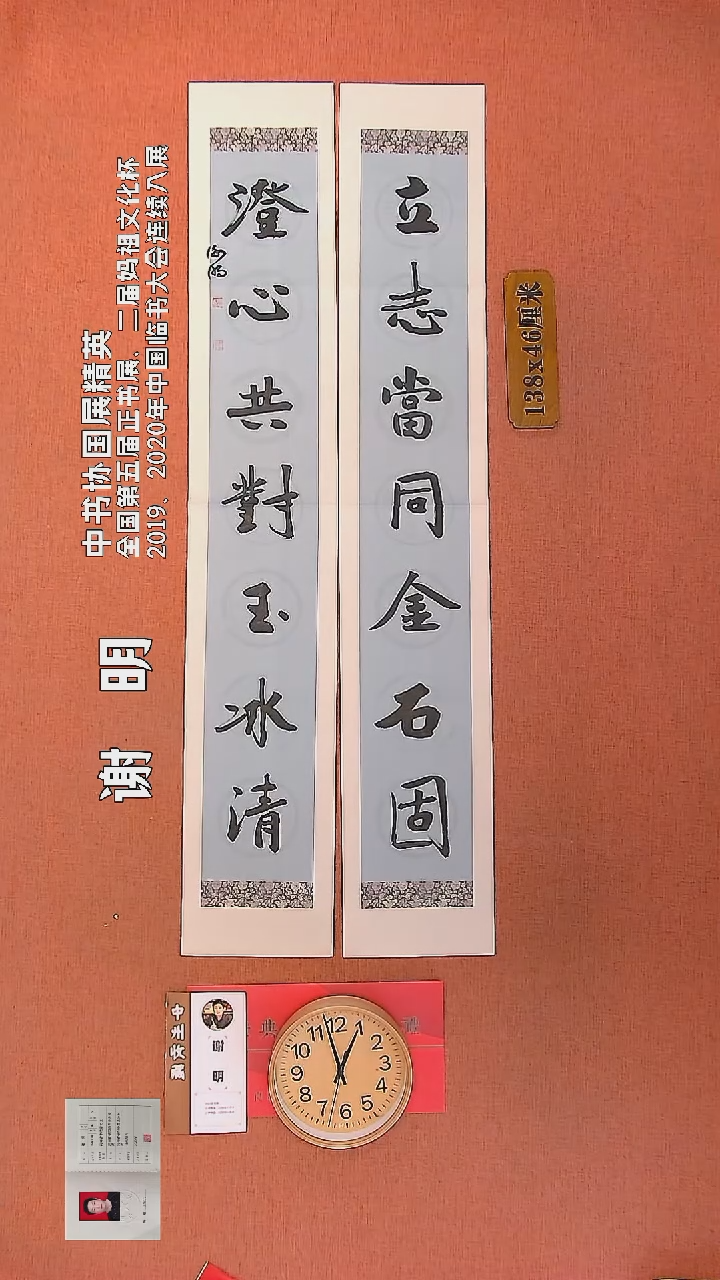 立志當同金石固
澄心共對玉冰清
138x46厘米
中书协国展精英
全国第五届正书展、二届妈祖文化杯
2019、2020年中国临书大会连续入展
谢 明
12
1
2
3
4
5
6
7
8
9
10
11